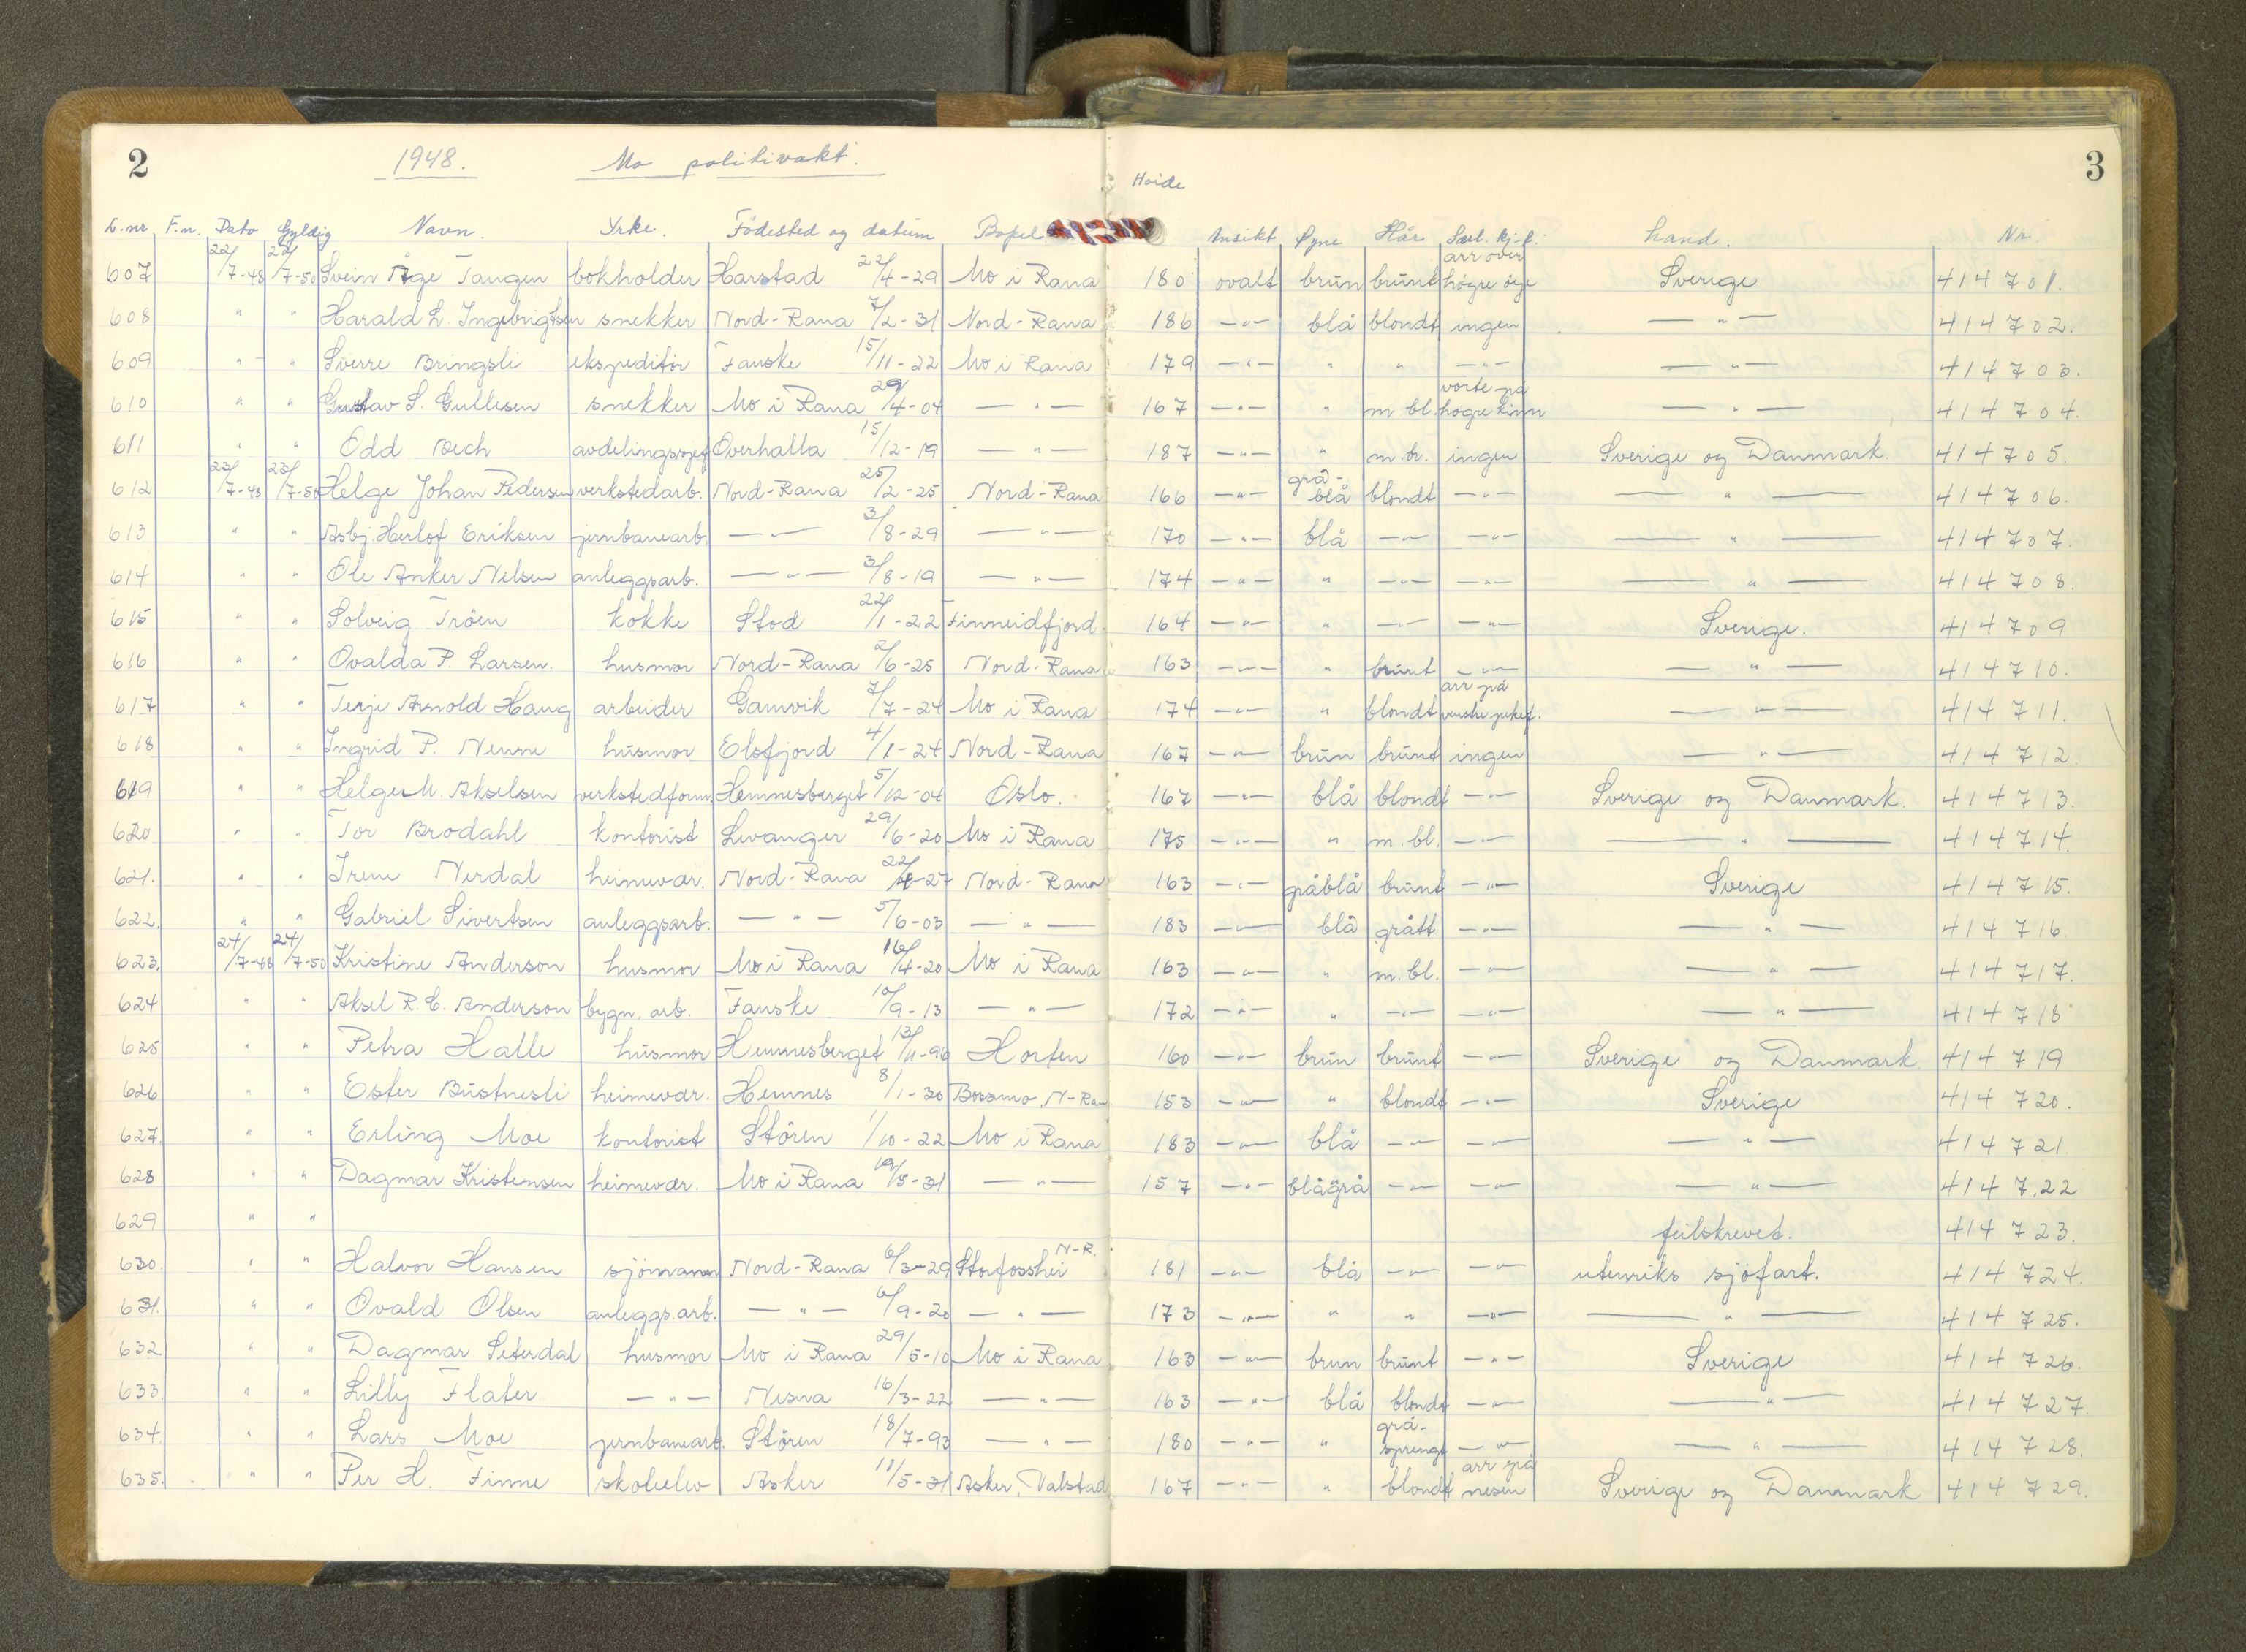 2 1948. Mo politivakt. 3
L.nr F.n. Dato Gyldig Navn. Yrke. Födested og datum Bopel Höide Ansikt Øyne Hår Særl. kj.t. Land. Nr.
607 22/7-48 22/7-50 Svein Åge Tangen bokholder Harstad 22/4-29 Mo i Rana 180 ovalt brun brunt arr over högre öye Sverige 414701.
608 " " Harald L. Ingebrigtsen snekker Nord-Rana 7/2-31 Nord-Rana 186 —"— blå blondt ingen —"— 414702.
609 " " Sverre Bringsli ekspeditör Fauske 15/11-22 Mo i Rana 179 —"— " " —"— —"— 414703.
610 " " Gustav S. Gullesen snekker Mo i Rana 29/4-04 —"— 167 —"— " m bl. vorte på högre kinn —"— 414704.
611 " " Odd Bech avdelingssjef Overhalla 15/12-19 —"— 187 —"— " m.br. ingen Sverige og Danmark. 414705.
612 23/7-48 23/7-50 Helge Johan Pedersen verkstedarb. Nord-Rana 25/2-25 Nord-Rana 166 —"— grå-blå blondt —"— —"— 414706.
613 " " Asbj. Herlof Eriksen jernbanearb. —"— 3/8-29 —"— 170 —"— blå —"— —"— —"— 414707.
614 " " Ole Anker Nilsen anleggsarb. —"— 3/8-19 —"— 174 —"— " —"— —"— —"— 414708.
615 " " Solveig Tröen kokke Stod 22/1-22 Finneidfjord. 164 —"— " —"— —"— Sverige. 414709
616 " " Ovalda P. Larsen. husmor Nord-Rana 2/6-25 Nord-Rana 163 —"— " brunt —"— —"— 414710.
617 " " Terje Arnold Haug arbeider Gamvik 7/7-24 Mo i Rana 174 —"— " blondt arr på venstre pekef. —"— 414711.
618 " " Ingrid P. Nenne husmor Elsfjord 4/1-24 Nord-Rana 167 —"— brun brunt ingen —"— 414712
619 " " Helge M. Akselsen verkstedform. Hemnesberget 5/12-04 Oslo. 167 —"— blå blondt —"— Sverige og Danmark. 414713.
620 " " Tor Brodahl kontorist Levanger 29/6-20 Mo i Rana 175 —"— " m. bl. —"— —"— 414714.
621. " " Irene Nerdal heimevær. Nord-Rana 22/4-27 Nord-Rana 163 —"— gråblå brunt —"— Sverige 414715.
622. " " Gabriel Sivertsen anleggsarb. —"— 5/6-03 —"— 183 —"— blå grått —"— —"— 414716.
623. 24/7-48 24/7-50 Kristine Anderson husmor Mo i Rana 16/4-20 Mo i Rana 163 —"— " m.bl. —"— —"— 414717.
624 " " Aksel R. E. Anderson bygn. arb. Fauske 10/9-13 —"— 172 —"— " —"— —"— —"— 414718
625 " " Petra Halle husmor Hemnesberget 13/11-96 Horten 160 —"— brun brunt —"— Sverige og Danmark 414719
626 " " Ester Bustnesli heimevær. Hemnes 8/1-30 Bossmo, N-Ran 153 —"— " blondt —"— Sverige 414720.
627. " " Erling Moe kontorist Stören 1/10-22 Mo i Rana 183 —"— blå —"— —"— —"— 414721
628 " " Dagmar Kristensen heimevær. Mo i Rana 19/5-31 —"— 157 —"— blågrå —"— —"— —"— 414722
629 " " feilskrevet. 414723.
630. " " Halvor Hansen sjömann Nord-Rana 6/3-29 Storfosshei N-R. 181 —"— blå —"— —"— utenriks sjöfart. 414724.
631. " " Ovald Olsen anleggs.arb. —"— 6/9-20 —"— 173 —"— " " —"— —"— 414725.
632 " " Dagmar Seterdal husmor Mo i Rana 29/5-10 Mo i Rana 163 —"— brun brunt —"— Sverige 414726.
633. " " Lilly Flater —"— Nesna 16/3-22 —"— 163 —"— blå blondt —"— —"— 414727.
634. " " Lars Moe jernbanearb. Stören 18/7-93 —"— 180 —"— " grå-sprengt —"— —"— 414728.
635. " " Per H. Finne skoleelev Asker 11/5-31 Asker, Valstad 167 —"— " blondt arr på nesen Sverige og Danmark 414729.